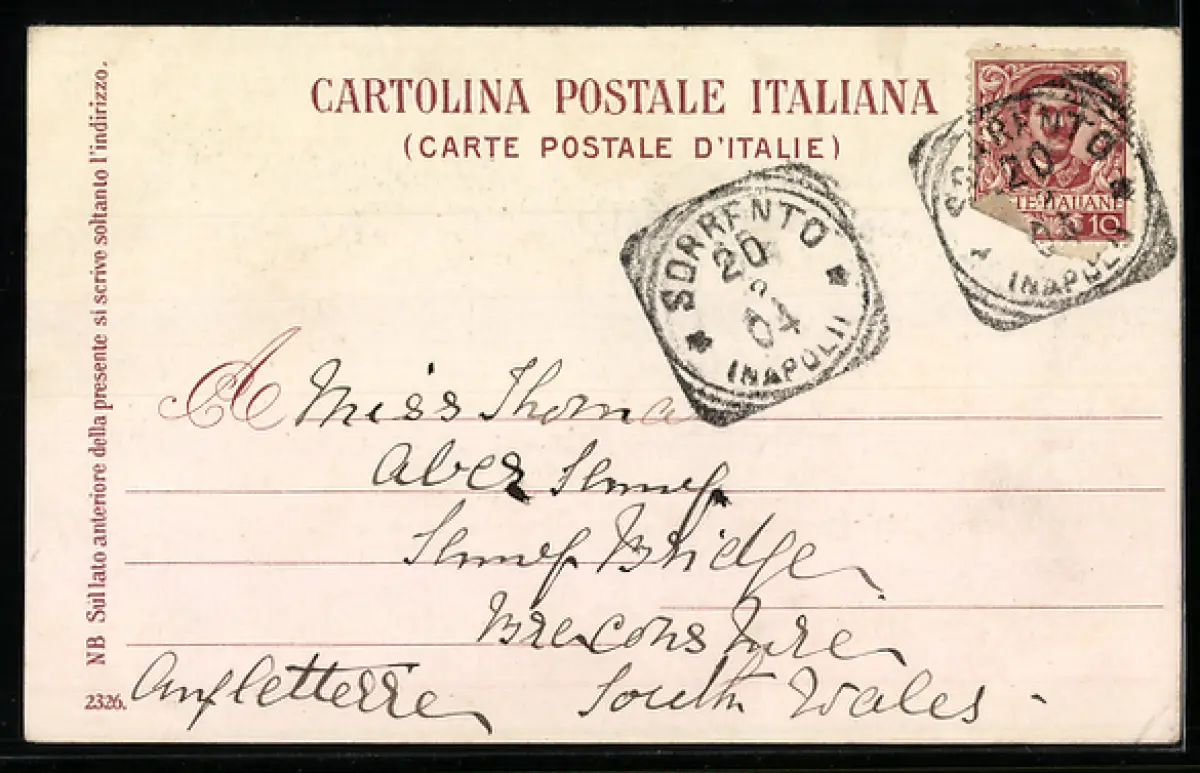 CARTOLINA POSTALE ITALIANA
(CARTE POSTALE D'ITALIE)
NB Sul lato anteriore della presente si scrive soltanto l'indirizzo.
2326.
TE ITALIANE
10
20
(NAPOLI)
SORRENTO
20
04
(NAPOLI)
A Miss Thomas
Aber
Bridge
Breconshire
South Wales -
Angleterre